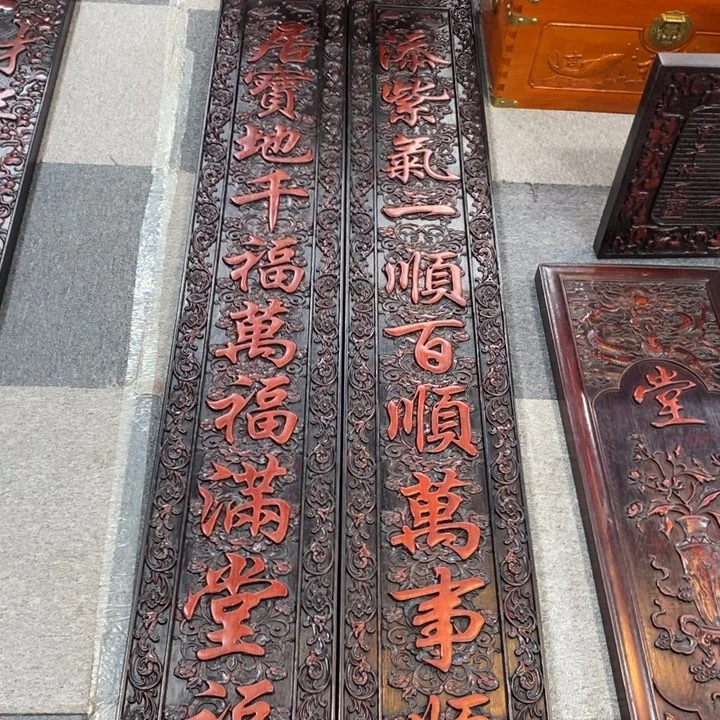 添紫氣一順百順萬事順
居寶地千福萬福滿堂福
堂